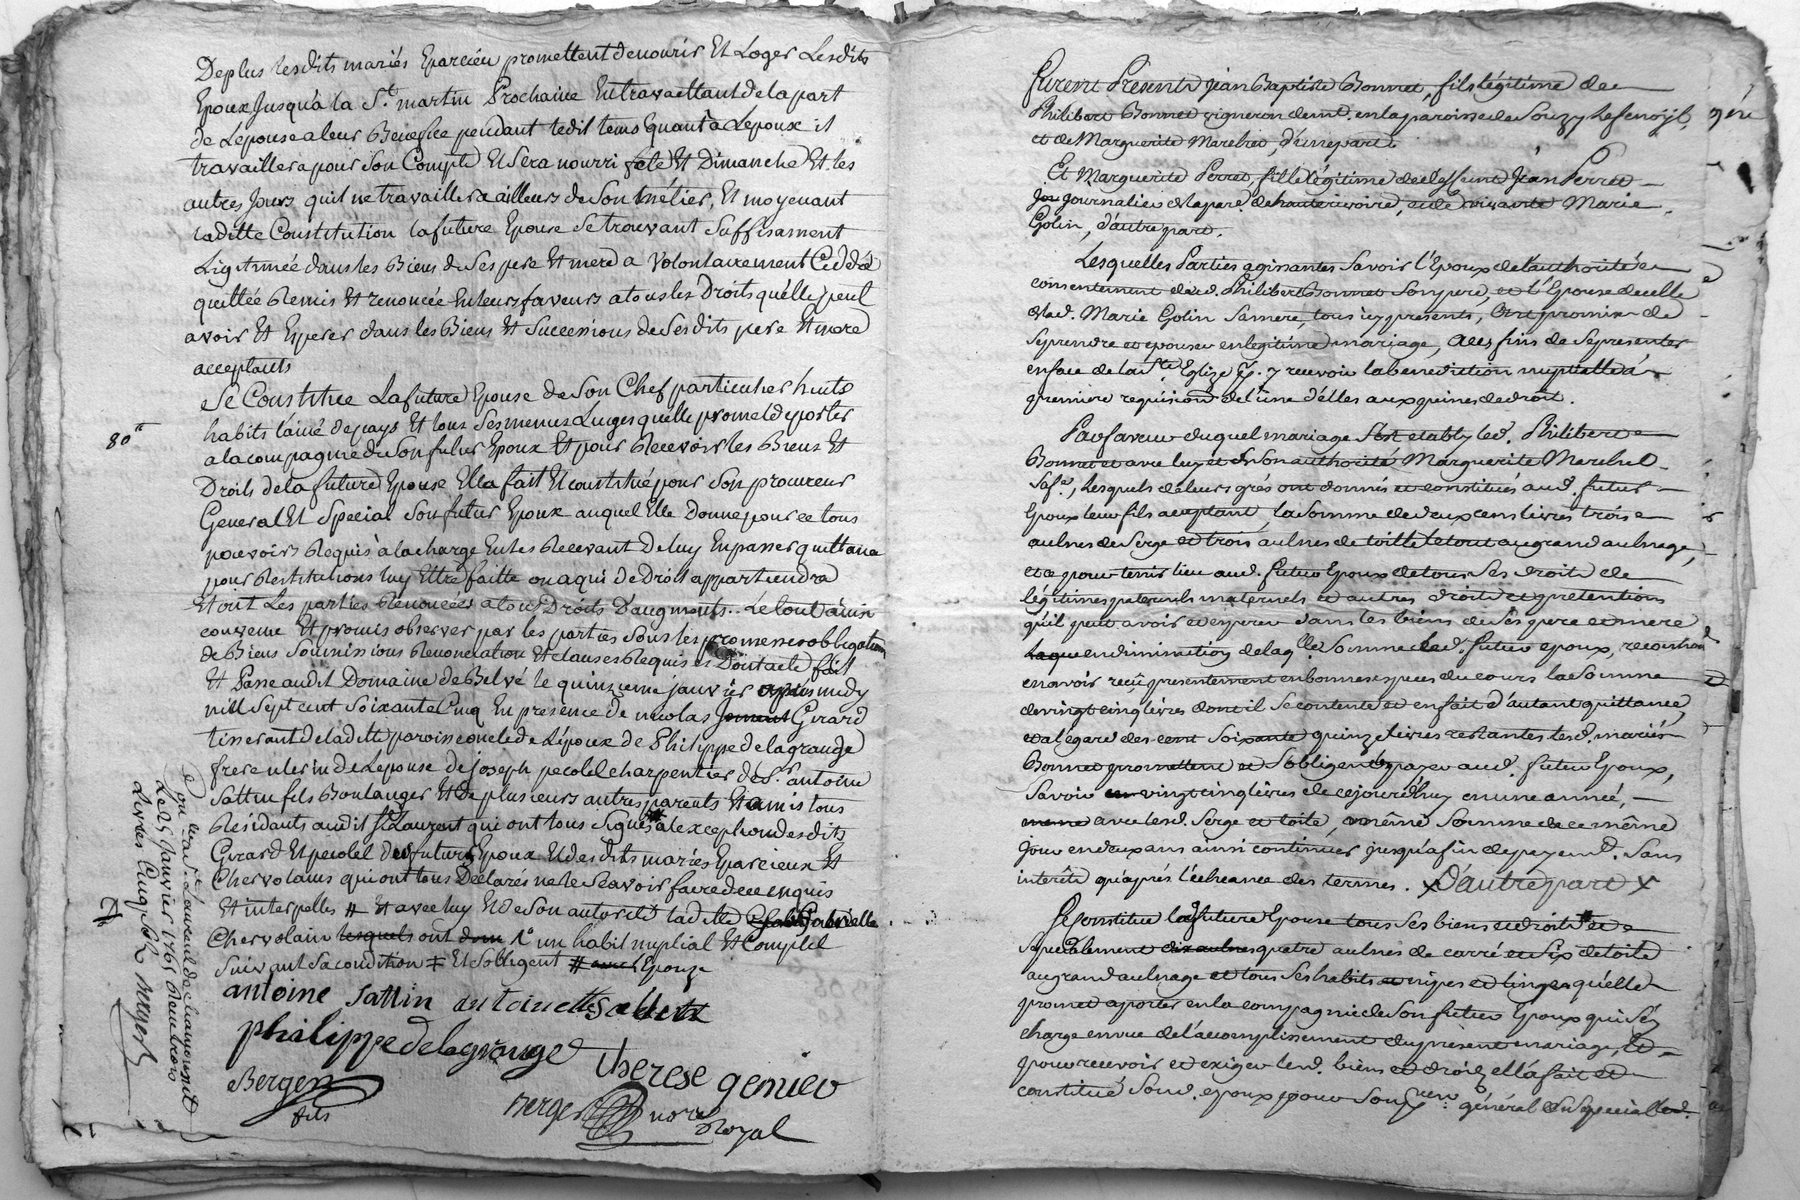 De plus lesdits mariés Eparcieu promettent de nourir Et Loger Lesdits
Epoux Jusqu'a la St. martin Prochaine En travaettant de la part
de Lepouse a leur Benefice pendant ledit tems Equant a Lepoux il
travaillera pour Son Compte Et Sera nourri fete Et Dimanche Et les
autres Jours quil ne travaillera ailleurs de Son métier, Et moyenant
laditte Constitution la future Epouse Se trouvant Suffisament
Ligitimée dans les Biens de Ses pere Et mere a volontairement Ceddée
quittée Remis Et renoncée En leurs faveurs a tous les Droits quelle peut
avoir Et Esperer dans les Biens Et Successions de Sesdits pere Et mere
acceptants
Se Constitue La future Epouse de Son Chef particulier huit
habits laine de pays Et tous Ses menus Linges quelle promet dy porter
80
a la compagnie de Son futur Epoux Et pour Recevoir les Biens Et
Droits de la future Epouse Ella fait Et constitué pour Son procureur
General Et Special Son futur Epoux auquel Elle Donne pour ce tous
pouvoirs Requis a la charge En les Recevant De luy En passer quittance
pour Restitutions luy Ettre faitte ou a qui de Droit appartiendra
Et ont Les parties Renoncées a tous Droits D'augments. Le tout ainsi
convenu Et promis observer par les parties Sous les promesses obligation
de Biens Soumissions Renonciation Et clauses Requises Dont acte fait
Et Passe audit Domaine de Belvé le quinzieme janvier après midy
mill Sept cent Soixante Cinq En presence de nicolas Girard
tisserant de laditte paroisse oncle de Lépoux de Philippe delagrange
frere uterin de Lepouse de joseph pecolet charpentier de Sr. antoine
Sattin fils Boulanger Et de plusieurs autres parents Et amis tous
Résidants audit St. Laurent qui ont tous Signés a lexception desdits
Girard Et pecolet desd futurs Epoux Et desdits mariés Eparcieux Et
Chervolains qui ont tous Déclarés ne le Scavoir faire de ce enquis
Et interpelles # Et avec luy Et de Son autorité laditte Gabrielle
Chervolain lesquels ont 1° un habit nuptial Et Complet
Suivant Sa condition ‡ Et Sobligent # Epouze
antoine Sattin antoinette
philippe delagrange
therese genier
Berger
fils
Berger nore
Royal
a St. Laurent de chamousset
Le 25 Janvier 1765 Recu trois
Livres Cinq Berger
Furent Présents Jean Baptiste Bonnet, fils légitime de
Philibert Bonnet vigneron demt. en la paroisse de Souzy
et de Marguerite d'une part.
Et Marguerite Perret, fille légitime de deffunt Jean Perret
Journalier de la pare. de hauterivoire, et de vivante Marie
Golin, d'autre part.
Lesquelles Parties agissantes Savoir l'Epoux de l'authorité et
consentement dud. Philibert Bonnet Son pere, et l'Epouse de celle
de lad. Marie Golin Sa mere, tous icy presents, Ont promis de
Se prendre et epouser en legitime mariage, A ces fins de Se présenter
en face de la Ste Eglize pr. y recevoir la bénédiction nuptialle à
premiere requision de l'une d'élles aux peines de droit.
En faveur duquel mariage S'est etably led. Philibert
Bonnet et avec luy et de Son authorité Marguerite
Sa fe., Lesquels de leurs grés ont donnés et constitués aud. futur
Epoux leur fils acceptant, la Somme de deux cens livres trois
aulnes de Serge et trois aulnes de toille le tout au grand aulnage,
et ce pour tenir lieu aud. futur Epoux de tous Ses droits de
légitimes paternels maternels et autres droits et prétentions
qu'il peut avoir et esperer dans les biens de Ses pere et mere
en diminution de laqlle Somme led. futur epoux, reconnoit
en avoir reçu presentement en bonnes especes du cours la Somme
de vingt cinq livres dont il Se contente et en fait d'autant quittance,
et a l'égard des cent Soixante quinze livres restantes lesd. mariés
Bonnet promettent et S'obligent payer aud. futur Epoux,
Savoir vingt cinq livres de ce jourd'huy en une année,
avec lesd. Serge et toile, même Somme de ce même
jour en deux ans ainsi continuer jusqu'a fin de payemt. Sans
interêts qu'après l'échéance des termes. X D'autre part X
Se constitue lad. future Epouse tous Ses biens et droits et
Specialement dix aulnes quatre aulnes de carré et Six de toile
au grand aulnage et tous Ses habits et nipes et linges qu'elle
promet aporter en la compagnie de Son futur Epoux qui S'en
charge en vue de l'accomplissement du present mariage, Et
pour recevoir et exiger lesd. biens et droits ell'a fait et
constitué Sond. epoux pour Son général et Special